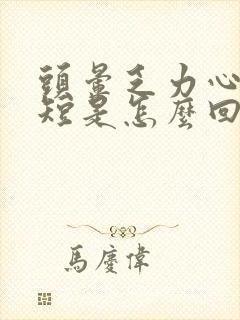 頭暈乏力心
短是怎麼回
馬慶偉